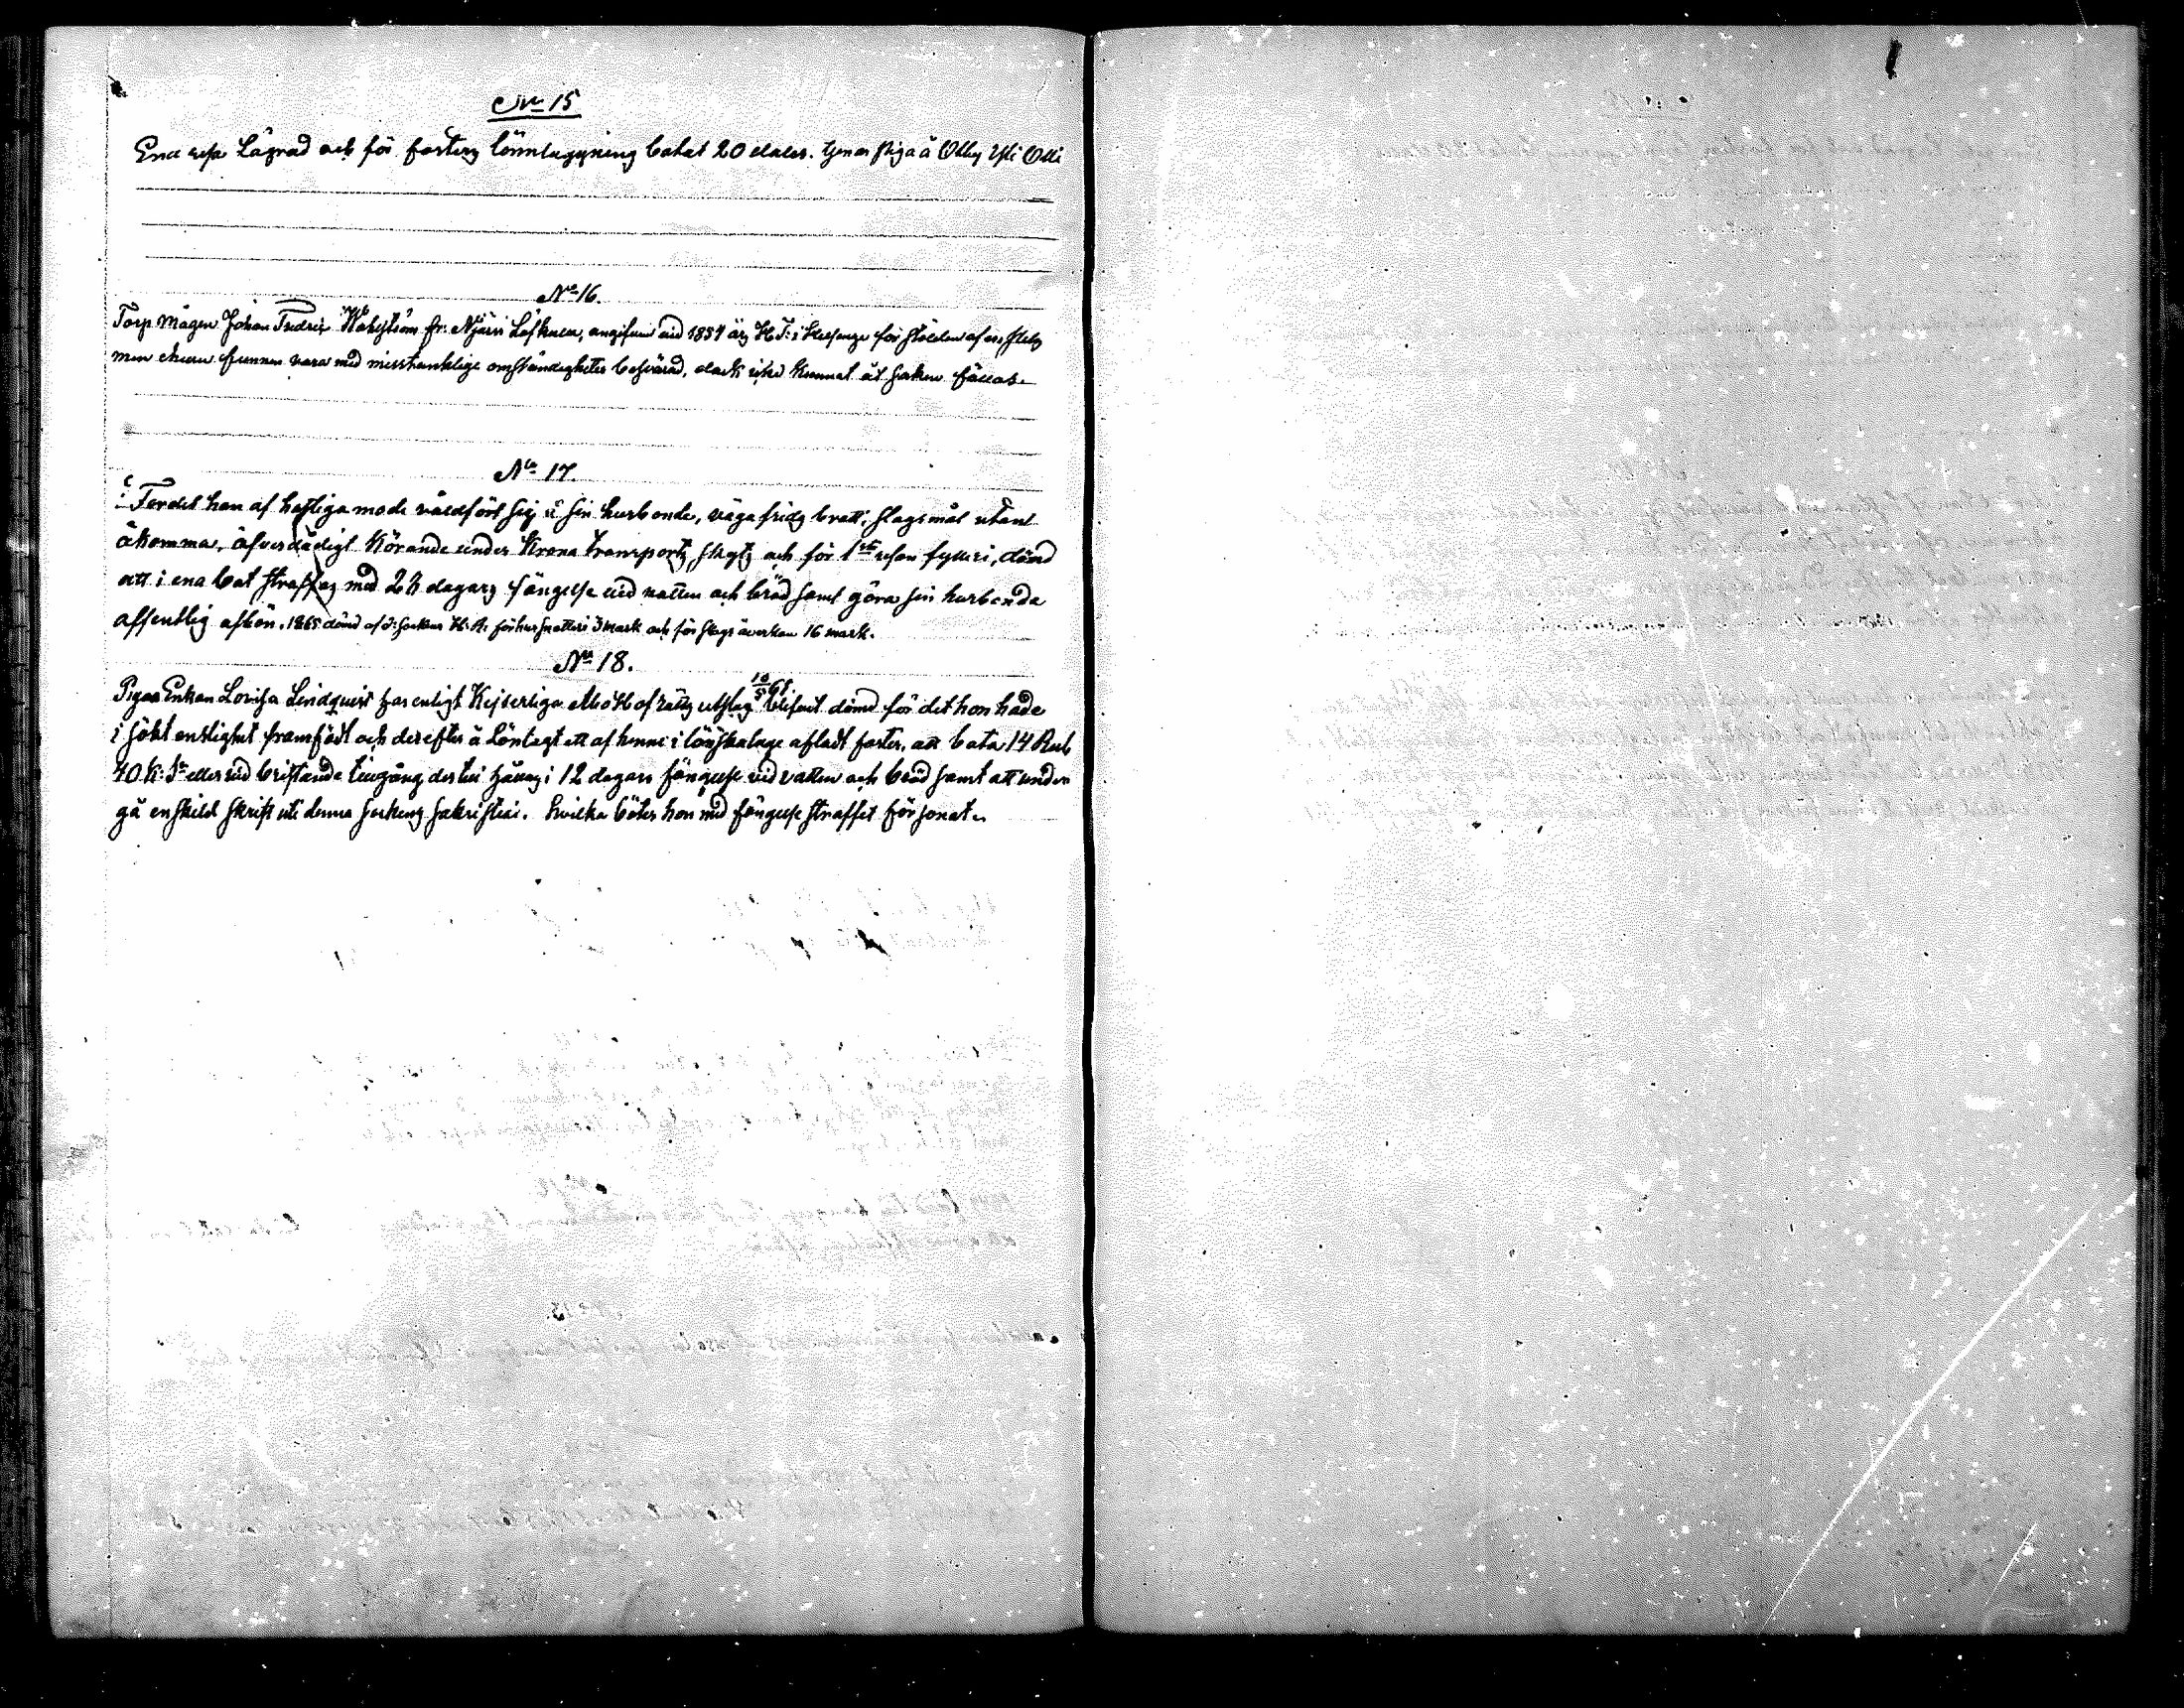 No 15
Ena resa Lägrad och för fosters lönnläggning botat 20 daler. tjenar piga å Olley Yli Olli
No 16.
Torp mågen Johan Fredric fr: Njärri Löfkulla, angifven vid 1854 års H T: i för stölden af en
men ehuru funnen vara med misstänklige omständigheter besvärad, dock icke kunnat åt saken fällas.
No 17.
För det han af hastiga mode våldfört sig å sin husbonde, väga frids brott, slagsmål utan
åkomma, öfverdådigt körande under Krono transports skjuts och för 1sta resan fylleri, dömd
att i ena bot straffas med 28 dagars fängelse vid vatten och bröd samt göra sin husbonde
offentlig afbön. 1865 dömd af H: R: för 3 mark och för slags åverkan 16 mark.
No 18.
Pigan Enkan Lovisa Lindqvist har enligt Kejserliga Åbo Hofrätts utslag 10/5 65. blifvit dömd för det hon hade
i sökt enslighet framfödt och derefter å Lön lagt ett af henne i lönskaläge afladt foster, att bota 14 Rub
40 K: Sr eller vid bristande tillgång dertill hållas i 12 dagars fängelse vid vatten och bröd samt att under
gå enskild skrift uti denna sockens sakristia. hvilka böter hon med fängelse straffet försonat.